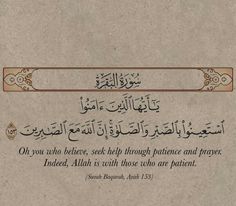 سُورَةُ الْبَقَرَةِ
يَٰٓأَيُّهَا الَّذِينَ ءَامَنُوا
اسْتَعِينُوا بِالصَّبْرِ وَالصَّلَوٰةِ إِنَّ اللَّهَ مَعَ الصَّٰبِرِينَ ١٥٣
Oh you who believe, seek help through patience and prayer.
Indeed, Allah is with those who are patient.
(Surah Baqarah, Ayah 153)